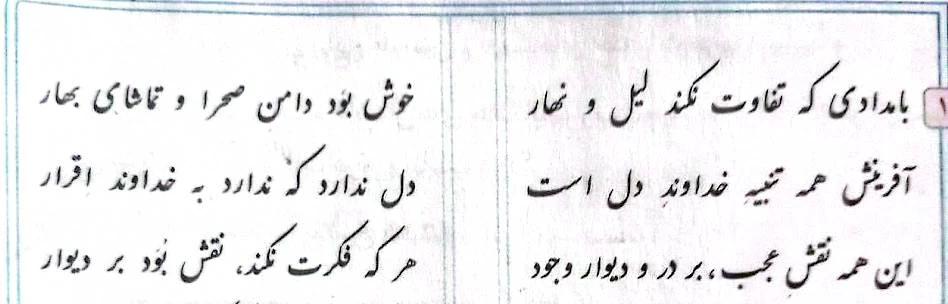 ۱ بامدادی که تفاوت نکند لیل و نهار خوش بوَد دامنِ صحرا و تماشای بهار
آفرینش همه تنبیهِ خداوندِ دل است دل ندارد که ندارد به خداوند اقرار
این همه نقشِ عجب، بر در و دیوار وجود هر که فکرت نکند، نقش بُوَد بر دیوار